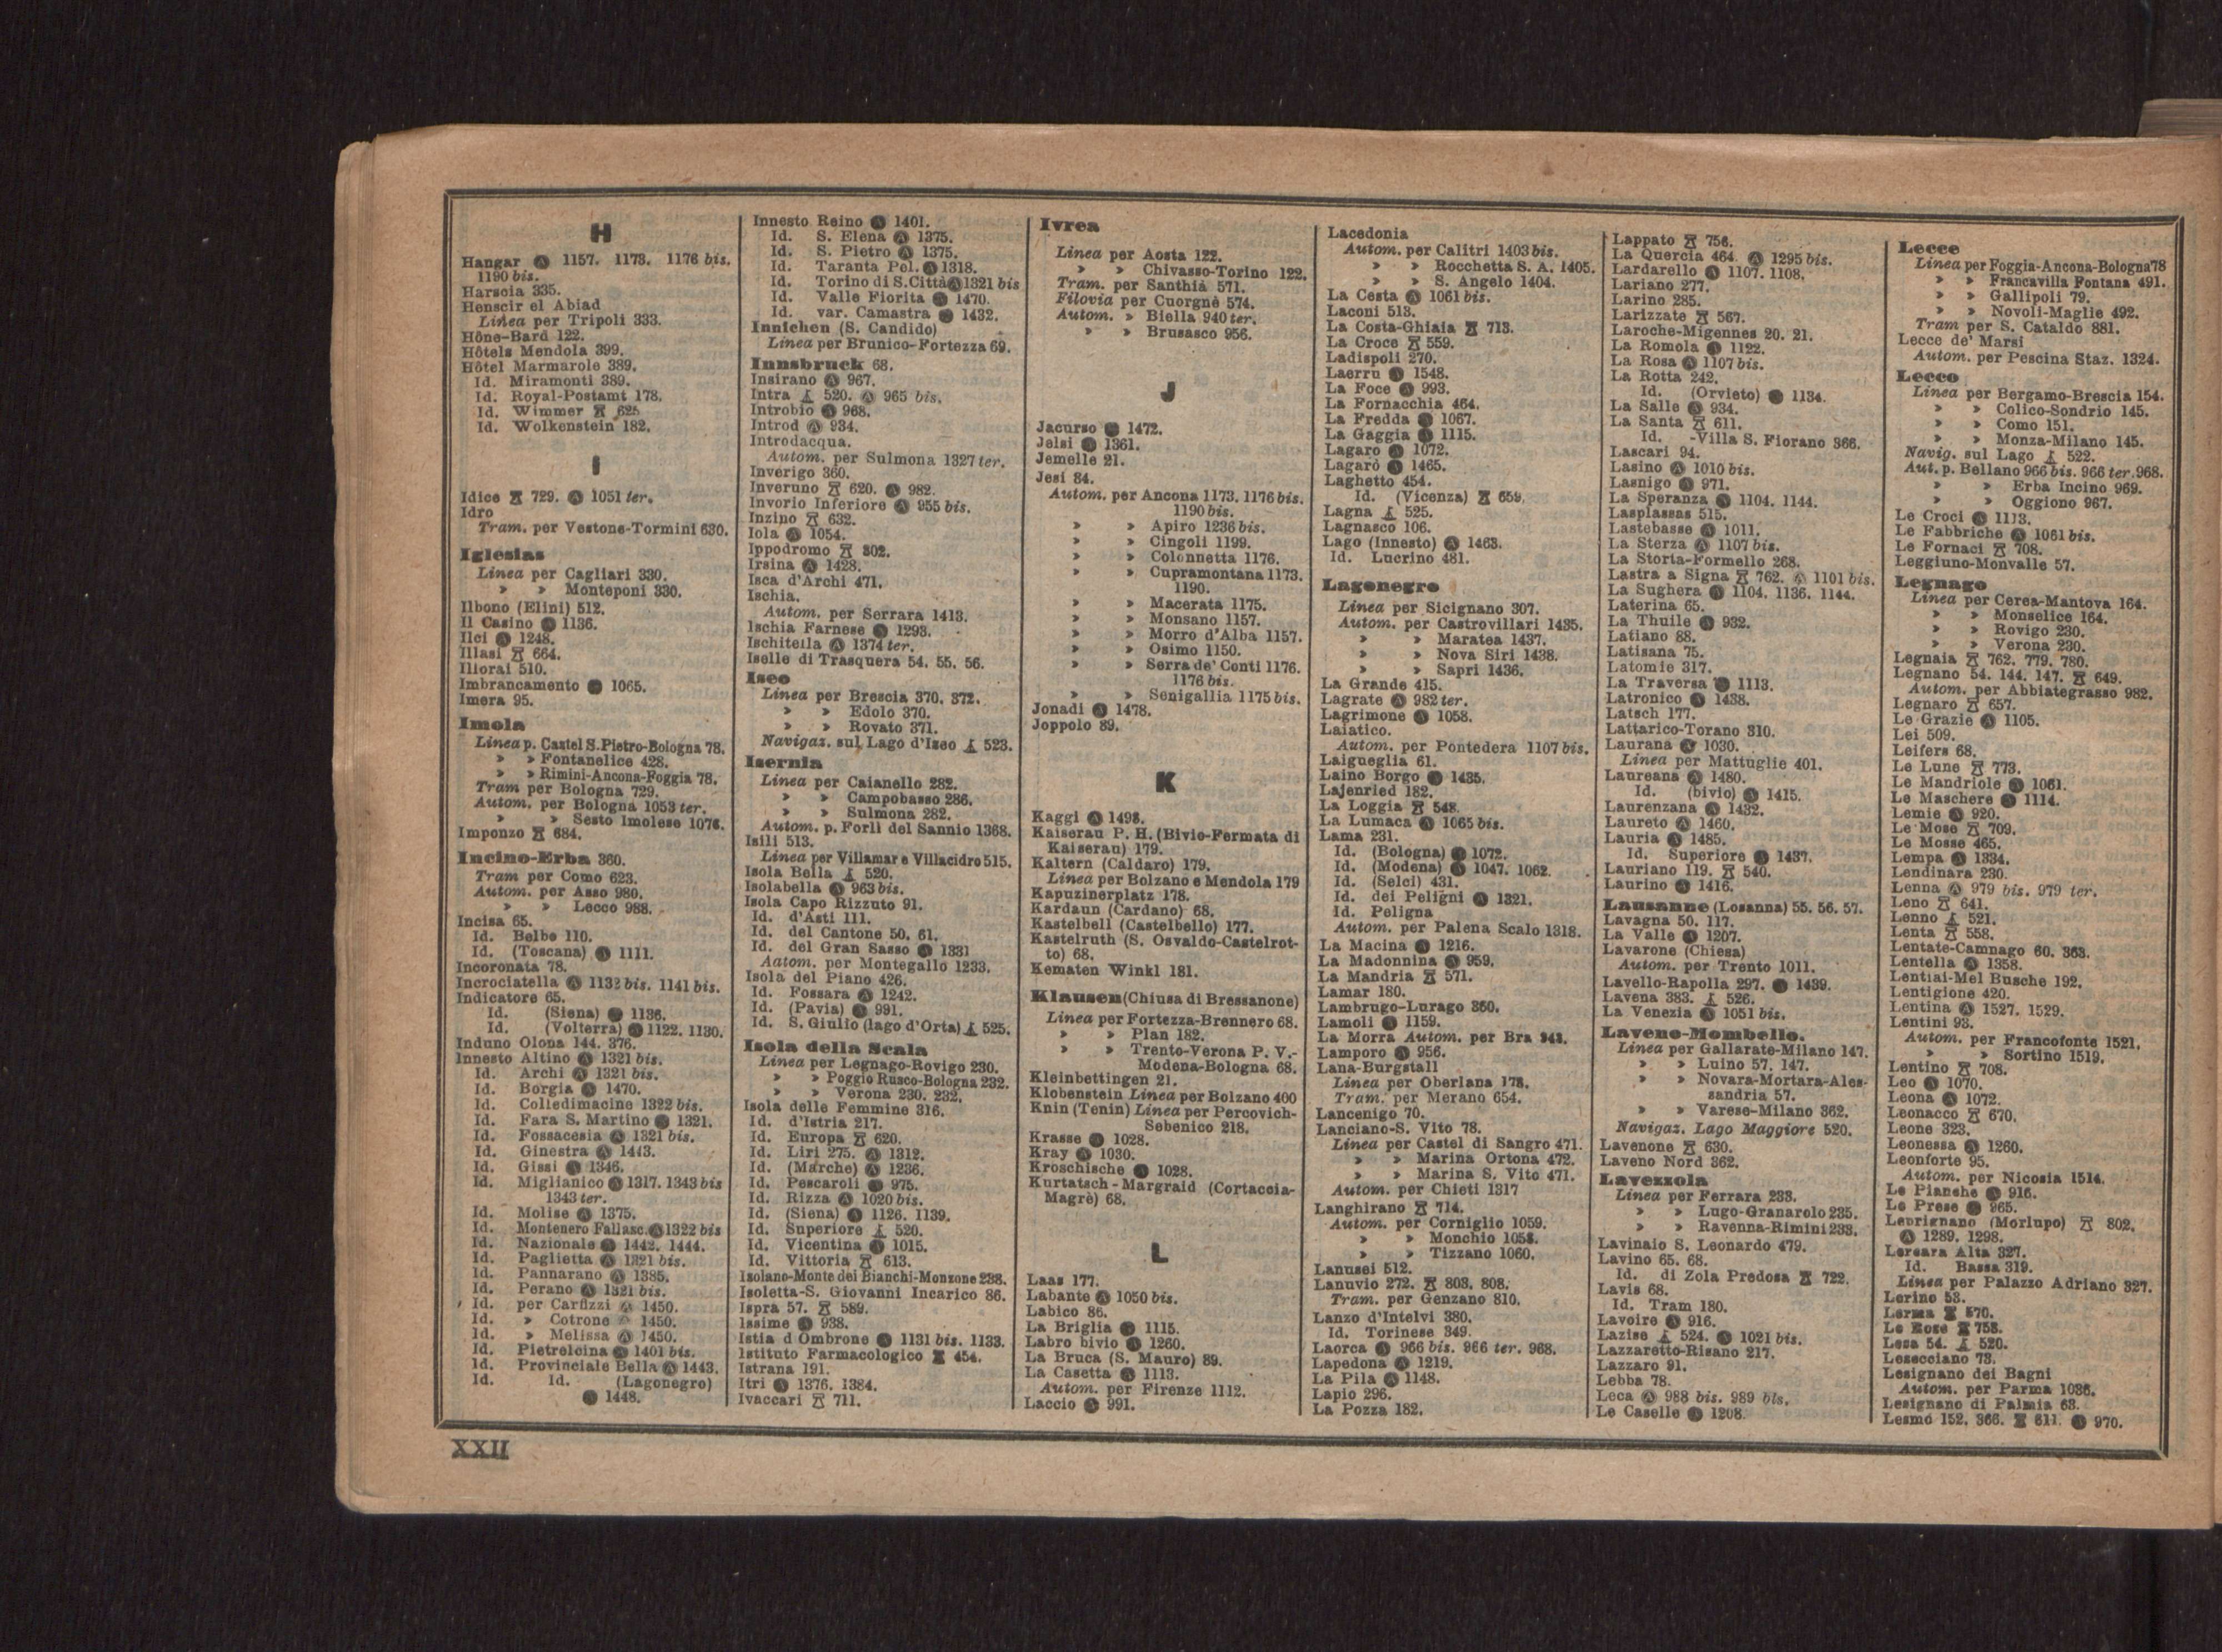 H
Hangar Ⓐ 1157. 1173. 1176 bis.
1190 bis.
Harscia 335.
Henscir el Abiad
Linea per Tripoli 333.
Hône-Bard 122.
Hôtels Mendola 399.
Hôtel Marmarole 389.
Id. Miramonti 389.
Id. Royal-Postamt 178.
Id. Wimmer 625
Id. Wolkenstein 182.
I
Idice 729. Ⓐ 1051 ter.
Idro
Tram. per Vestone-Tormini 630.
Iglesias
Linea per Cagliari 330.
» » Monteponi 330.
Ilbono (Elini) 512.
Il Casino Ⓐ 1136.
Ilci Ⓐ 1248.
Illasi 664.
Illorai 510.
Imbrancamento Ⓐ 1065.
Imera 95.
Imola
Linea p. Castel S. Pietro-Bologna 78.
» » Fontanelice 428.
» » Rimini-Ancona-Foggia 78.
Tram per Bologna 729.
Autom. per Bologna 1053 ter.
» » Sesto Imolese 1076.
Imponzo 684.
Incino-Erba 360.
Tram per Como 623.
Autom. per Asso 980.
» » Lecco 988.
Incisa 65.
Id. Belbo 110.
Id. (Toscana) Ⓐ 1111.
Incoronata 78.
Incrociatella Ⓐ 1132 bis. 1141 bis.
Indicatore 65.
Id. (Siena) Ⓐ 1136.
Id. (Volterra) Ⓐ 1122. 1130.
Induno Olona 144. 376.
Innesto Altino Ⓐ 1321 bis.
Id. Archi Ⓐ 1321 bis.
Id. Borgia Ⓐ 1470.
Id. Colledimacine 1322 bis.
Id. Fara S. Martino Ⓐ 1321.
Id. Fossacesia Ⓐ 1321 bis.
Id. Ginestra Ⓐ 1443.
Id. Gissi Ⓐ 1346.
Id. Miglianico Ⓐ 1317. 1343 bis
1343 ter.
Id. Molise Ⓐ 1375.
Id. Montenero Fallasc. Ⓐ 1322 bis
Id. Nazionale Ⓐ 1442. 1444.
Id. Paglietta Ⓐ 1321 bis.
Id. Pannarano Ⓐ 1385.
Id. Perano Ⓐ 1321 bis.
Id. per Carfizzi Ⓐ 1450.
Id. » Cotrone Ⓐ 1450.
Id. » Melissa Ⓐ 1450.
Id. Pietrelcina Ⓐ 1401 bis.
Id. Provinciale Bella Ⓐ 1443.
Id. Id. (Lagonegro)
Ⓐ 1448.
Innesto Reino Ⓐ 1401.
Id. S. Elena Ⓐ 1375.
Id. S. Pietro Ⓐ 1375.
Id. Taranta Pel. Ⓐ 1318.
Id. Torino di S. Città Ⓐ 1321 bis
Id. Valle Fiorita Ⓐ 1470.
Id. var. Camastra Ⓐ 1432.
Innichen (S. Candido)
Linea per Brunico-Fortezza 69.
Innsbruck 68.
Insirano Ⓐ 967.
Intra 520. Ⓐ 965 bis.
Introbio Ⓐ 968.
Introd Ⓐ 934.
Introdacqua.
Autom. per Sulmona 1327 ter.
Inverigo 360.
Inveruno 620. Ⓐ 982.
Invorio Inferiore Ⓐ 955 bis.
Inzino 632.
Iola Ⓐ 1054.
Ippodromo 802.
Irsina Ⓐ 1428.
Isca d'Archi 471.
Ischia.
Autom. per Serrara 1413.
Ischia Farnese Ⓐ 1293.
Ischitella Ⓐ 1374 ter.
Iselle di Trasquera 54. 55. 56.
Iseo
Linea per Brescia 370. 372.
» » Edolo 370.
» » Rovato 371.
Navigaz. sul Lago d'Iseo 523.
Isernia
Linea per Caianello 282.
» » Campobasso 286.
» » Sulmona 282.
Autom. p. Forlì del Sannio 1368.
Isili 513.
Linea per Villamar e Villacidro 515.
Isola Bella 520.
Isolabella Ⓐ 963 bis.
Isola Capo Rizzuto 91.
Id. d'Asti 111.
Id. del Cantone 50. 61.
Id. del Gran Sasso Ⓐ 1331
Aatom. per Montegallo 1233.
Isola del Piano 426.
Id. Fossara Ⓐ 1242.
Id. (Pavia) Ⓐ 991.
Id. S. Giulio (lago d'Orta) 525.
Isola della Scala
Linea per Legnago-Rovigo 230.
» » Poggio Rusco-Bologna 232.
» » Verona 230. 232.
Isola delle Femmine 316.
Id. d'Istria 217.
Id. Europa 620.
Id. Liri 275. Ⓐ 1312.
Id. (Marche) Ⓐ 1236.
Id. Pescaroli Ⓐ 975.
Id. Rizza Ⓐ 1020 bis.
Id. (Siena) Ⓐ 1126. 1139.
Id. Superiore 520.
Id. Vicentina Ⓐ 1015.
Id. Vittoria 613.
Isolano-Monte dei Bianchi-Monzone 238.
Isoletta-S. Giovanni Incarico 86.
Ispra 57. 589.
Issime Ⓐ 938.
Istia d Ombrone Ⓐ 1131 bis. 1133.
Istituto Farmacologico 454.
Istrana 191.
Itri Ⓐ 1376. 1384.
Ivaccari 711.
Ivrea
Linea per Aosta 122.
» » Chivasso-Torino 122.
Tram. per Santhià 571.
Filovia per Cuorgnè 574.
Autom. » Biella 940 ter.
» » Brusasco 956.
J
Jacurso Ⓐ 1472.
Jelsi Ⓐ 1361.
Jemelle 21.
Jesi 84.
Autom. per Ancona 1173. 1176 bis.
1190 bis.
» » Apiro 1236 bis.
» » Cingoli 1199.
» » Colonnetta 1176.
» » Cupramontana 1173.
1190.
» » Macerata 1175.
» » Monsano 1157.
» » Morro d'Alba 1157.
» » Osimo 1150.
» » Serra de' Conti 1176.
1176 bis.
» » Senigallia 1175 bis.
Jonadi Ⓐ 1478.
Joppolo 89.
K
Kaggi Ⓐ 1498.
Kaiserau P. H. (Bivio-Fermata di
Kaiserau) 179.
Kaltern (Caldaro) 179.
Linea per Bolzano e Mendola 179
Kapuzinerplatz 178.
Kardaun (Cardano) 68.
Kastelbell (Castelbello) 177.
Kastelruth (S. Osvaldo-Castelrot-
to) 68.
Kematen Winkl 181.
Klausen (Chiusa di Bressanone)
Linea per Fortezza-Brennero 68.
» » Plan 182.
» » Trento-Verona P. V.-
Modena-Bologna 68.
Kleinbettingen 21.
Klobenstein Linea per Bolzano 400
Knin (Tenin) Linea per Percovich-
Sebenico 218.
Krasse Ⓐ 1028.
Kray Ⓐ 1030.
Kroschische Ⓐ 1028.
Kurtatsch-Margraid (Cortaccia-
Magrè) 68.
L
Laas 177.
Labante Ⓐ 1050 bis.
Labico 86.
La Briglia Ⓐ 1115.
Labro bivio Ⓐ 1260.
La Bruca (S. Mauro) 89.
La Casetta Ⓐ 1113.
Autom. per Firenze 1112.
Laccio Ⓐ 991.
Lacedonia
Autom. per Calitri 1403 bis.
» » Rocchetta S. A. 1405.
» » S. Angelo 1404.
La Cesta Ⓐ 1061 bis.
Laconi 513.
La Costa-Ghiaia 713.
La Croce 559.
Ladispoli 270.
Laerru Ⓐ 1548.
La Foce Ⓐ 993.
La Fornacchia 464.
La Fredda Ⓐ 1067.
La Gaggia Ⓐ 1115.
Lagaro Ⓐ 1072.
Lagarò Ⓐ 1465.
Laghetto 454.
Id. (Vicenza) 659.
Lagna 525.
Lagnasco 106.
Lago (Innesto) Ⓐ 1463.
Id. Lucrino 481.
Lagonegro
Linea per Sicignano 307.
Autom. per Castrovillari 1435.
» » Maratea 1437.
» » Nova Siri 1438.
» » Sapri 1436.
La Grande 415.
Lagrate Ⓐ 982 ter.
Lagrimone Ⓐ 1058.
Laiatico.
Autom. per Pontedera 1107 bis.
Laigueglia 61.
Laino Borgo Ⓐ 1435.
Lajenried 182.
La Loggia 548.
La Lumaca Ⓐ 1065 bis.
Lama 231.
Id. (Bologna) Ⓐ 1072.
Id. (Modena) Ⓐ 1047. 1062.
Id. (Selci) 431.
Id. dei Peligni Ⓐ 1321.
Id. Peligna
Autom. per Palena Scalo 1318.
La Macina Ⓐ 1216.
La Madonnina Ⓐ 959.
La Mandria 571.
Lamar 180.
Lambrugo-Lurago 360.
Lamoli Ⓐ 1159.
La Morra Autom. per Bra 943.
Lamporo Ⓐ 956.
Lana-Burgstall
Linea per Oberlana 178.
Tram. per Merano 654.
Lancenigo 70.
Lanciano-S. Vito 78.
Linea per Castel di Sangro 471.
» » Marina Ortona 472.
» » Marina S. Vito 471.
Autom. per Chieti 1317
Langhirano 714.
Autom. per Corniglio 1059.
» » Monchio 1058.
» » Tizzano 1060.
Lanusei 512.
Lanuvio 272. 803. 808.
Tram. per Genzano 810.
Lanzo d'Intelvi 380.
Id. Torinese 349.
Laorca Ⓐ 966 bis. 966 ter. 968.
Lapedona Ⓐ 1219.
La Pila Ⓐ 1148.
Lapio 296.
La Pozza 182.
Lappato 756.
La Quercia 464. Ⓐ 1295 bis.
Lardarello Ⓐ 1107. 1108.
Lariano 277.
Larino 285.
Larizzate 567.
Laroche-Migennes 20. 21.
La Romola Ⓐ 1122.
La Rosa Ⓐ 1107 bis.
La Rotta 242.
Id. (Orvieto) Ⓐ 1134.
La Salle Ⓐ 934.
La Santa 611.
Id. -Villa S. Fiorano 366.
Lascari 94.
Lasino Ⓐ 1010 bis.
Lasnigo Ⓐ 971.
La Speranza Ⓐ 1104. 1144.
Lasplassas 515.
Lastebasse Ⓐ 1011.
La Sterza Ⓐ 1107 bis.
La Storta-Formello 268.
Lastra a Signa 762. Ⓐ 1101 bis.
La Sughera Ⓐ 1104. 1136. 1144.
Laterina 65.
La Thuile Ⓐ 932.
Latiano 88.
Latisana 75.
Latomie 317.
La Traversa Ⓐ 1113.
Latronico Ⓐ 1438.
Latsch 177.
Lattarico-Torano 310.
Laurana Ⓐ 1030.
Linea per Mattuglie 401.
Laureana Ⓐ 1480.
Id. (bivio) Ⓐ 1415.
Laurenzana Ⓐ 1432.
Laureto Ⓐ 1460.
Lauria Ⓐ 1485.
Id. Superiore Ⓐ 1437.
Lauriano 119. 540.
Laurino Ⓐ 1416.
Lausanne (Losanna) 55. 56. 57.
Lavagna 50. 117.
La Valle Ⓐ 1207.
Lavarone (Chiesa)
Autom. per Trento 1011.
Lavello-Rapolla 297. Ⓐ 1439.
Lavena 383. 526.
La Venezia Ⓐ 1051 bis.
Laveno-Mombello.
Linea per Gallarate-Milano 147.
» » Luino 57. 147.
» » Novara-Mortara-Ales-
sandria 57.
» » Varese-Milano 362.
Navigaz. Lago Maggiore 520.
Lavenone 630.
Laveno Nord 362.
Lavezzola
Linea per Ferrara 233.
» » Lugo-Granarolo 235.
» » Ravenna-Rimini 233.
Lavinaio S. Leonardo 479.
Lavino 65. 68.
Id. di Zola Predosa 722.
Lavis 68.
Id. Tram 180.
Lavoire Ⓐ 916.
Lazise 524. Ⓐ 1021 bis.
Lazzaretto-Risano 217.
Lazzaro 91.
Lebba 78.
Leca Ⓐ 988 bis. 989 bis.
Le Caselle Ⓐ 1208.
Lecce
Linea per Foggia-Ancona-Bologna 78
» » Francavilla Fontana 491.
» » Gallipoli 79.
» » Novoli-Maglie 492.
Tram per S. Cataldo 881.
Lecce de' Marsi
Autom. per Pescina Staz. 1324.
Lecco
Linea per Bergamo-Brescia 154.
» » Colico-Sondrio 145.
» » Como 151.
» » Monza-Milano 145.
Navig. sul Lago 522.
Aut. p. Bellano 966 bis. 966 ter. 968.
» » Erba Incino 969.
» » Oggiono 967.
Le Croci Ⓐ 1113.
Le Fabbriche Ⓐ 1061 bis.
Le Fornaci 708.
Leggiuno-Monvalle 57.
Legnago
Linea per Cerea-Mantova 164.
» » Monselice 164.
» » Rovigo 230.
» » Verona 230.
Legnaia 762. 779. 780.
Legnano 54. 144. 147. 649.
Autom. per Abbiategrasso 982.
Legnaro 657.
Le Grazie Ⓐ 1105.
Lei 509.
Leifers 68.
Le Lune 773.
Le Mandriole Ⓐ 1061.
Le Maschere Ⓐ 1114.
Lemie Ⓐ 920.
Le Mose 709.
Le Mosse 465.
Lempa Ⓐ 1334.
Lendinara 230.
Lenna Ⓐ 979 bis. 979 ter.
Leno 641.
Lenno 521.
Lenta 558.
Lentate-Camnago 60. 363.
Lentella Ⓐ 1358.
Lentiai-Mel Busche 192.
Lentigione 420.
Lentina Ⓐ 1527. 1529.
Lentini 93.
Autom. per Francofonte 1521.
» » Sortino 1519.
Lentino 708.
Leo Ⓐ 1070.
Leona Ⓐ 1072.
Leonacco 670.
Leone 323.
Leonessa Ⓐ 1260.
Leonforte 95.
Autom. per Nicosia 1514.
Le Pianche Ⓐ 916.
Le Prese Ⓐ 965.
Leprignano (Morlupo) 802.
Ⓐ 1289. 1298.
Lercara Alta 327.
Id. Bassa 319.
Linea per Palazzo Adriano 327.
Lerino 53.
Lerma 570.
Le Rose 758.
Lesa 54. 520.
Lesecciano 73.
Lesignano dei Bagni
Autom. per Parma 1086.
Lesignano di Palmia 63.
Lesmo 152. 366. 611. Ⓐ 970.
XXII